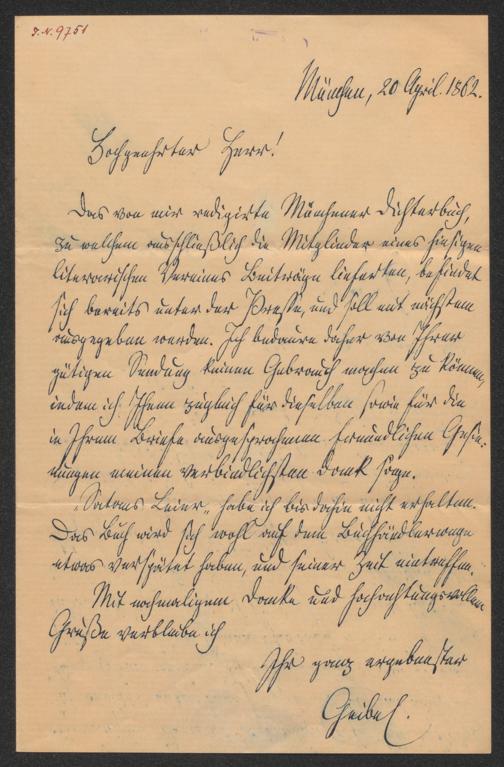 I. N. 9751
München, 20 April. 1862.
Hochgeehrter Herr!
Das von mir redigirte Münchener Dichterbuch,
zu welchem ausschließlich die Mitglieder eines hiesigen
literarischen Vereines Beiträge lieferten, befindet
sich bereits unter der Presse, und soll mit nächstem
ausgegeben werden. Ich bedaure daher von Ihrer
gütigen Sendung keinen Gebrauch machen zu können,
indem ich Ihnen zugleich für dieselben sowie für die
in Ihrem Briefe ausgesprochenen freundlichen Gesin=
nungen meinen verbindlichsten Dank sage.
„Satans Leier„ habe ich bis dahin nicht erhalten.
Das Buch wird sich wohl auf dem Buchhändlerwege
etwas verspätet haben, und seiner Zeit eintreffen.
Mit nochmaligem Danke und hochachtungsvollem
Gruße verbleibe ich
Ihr ganz ergebenster
Geibel.